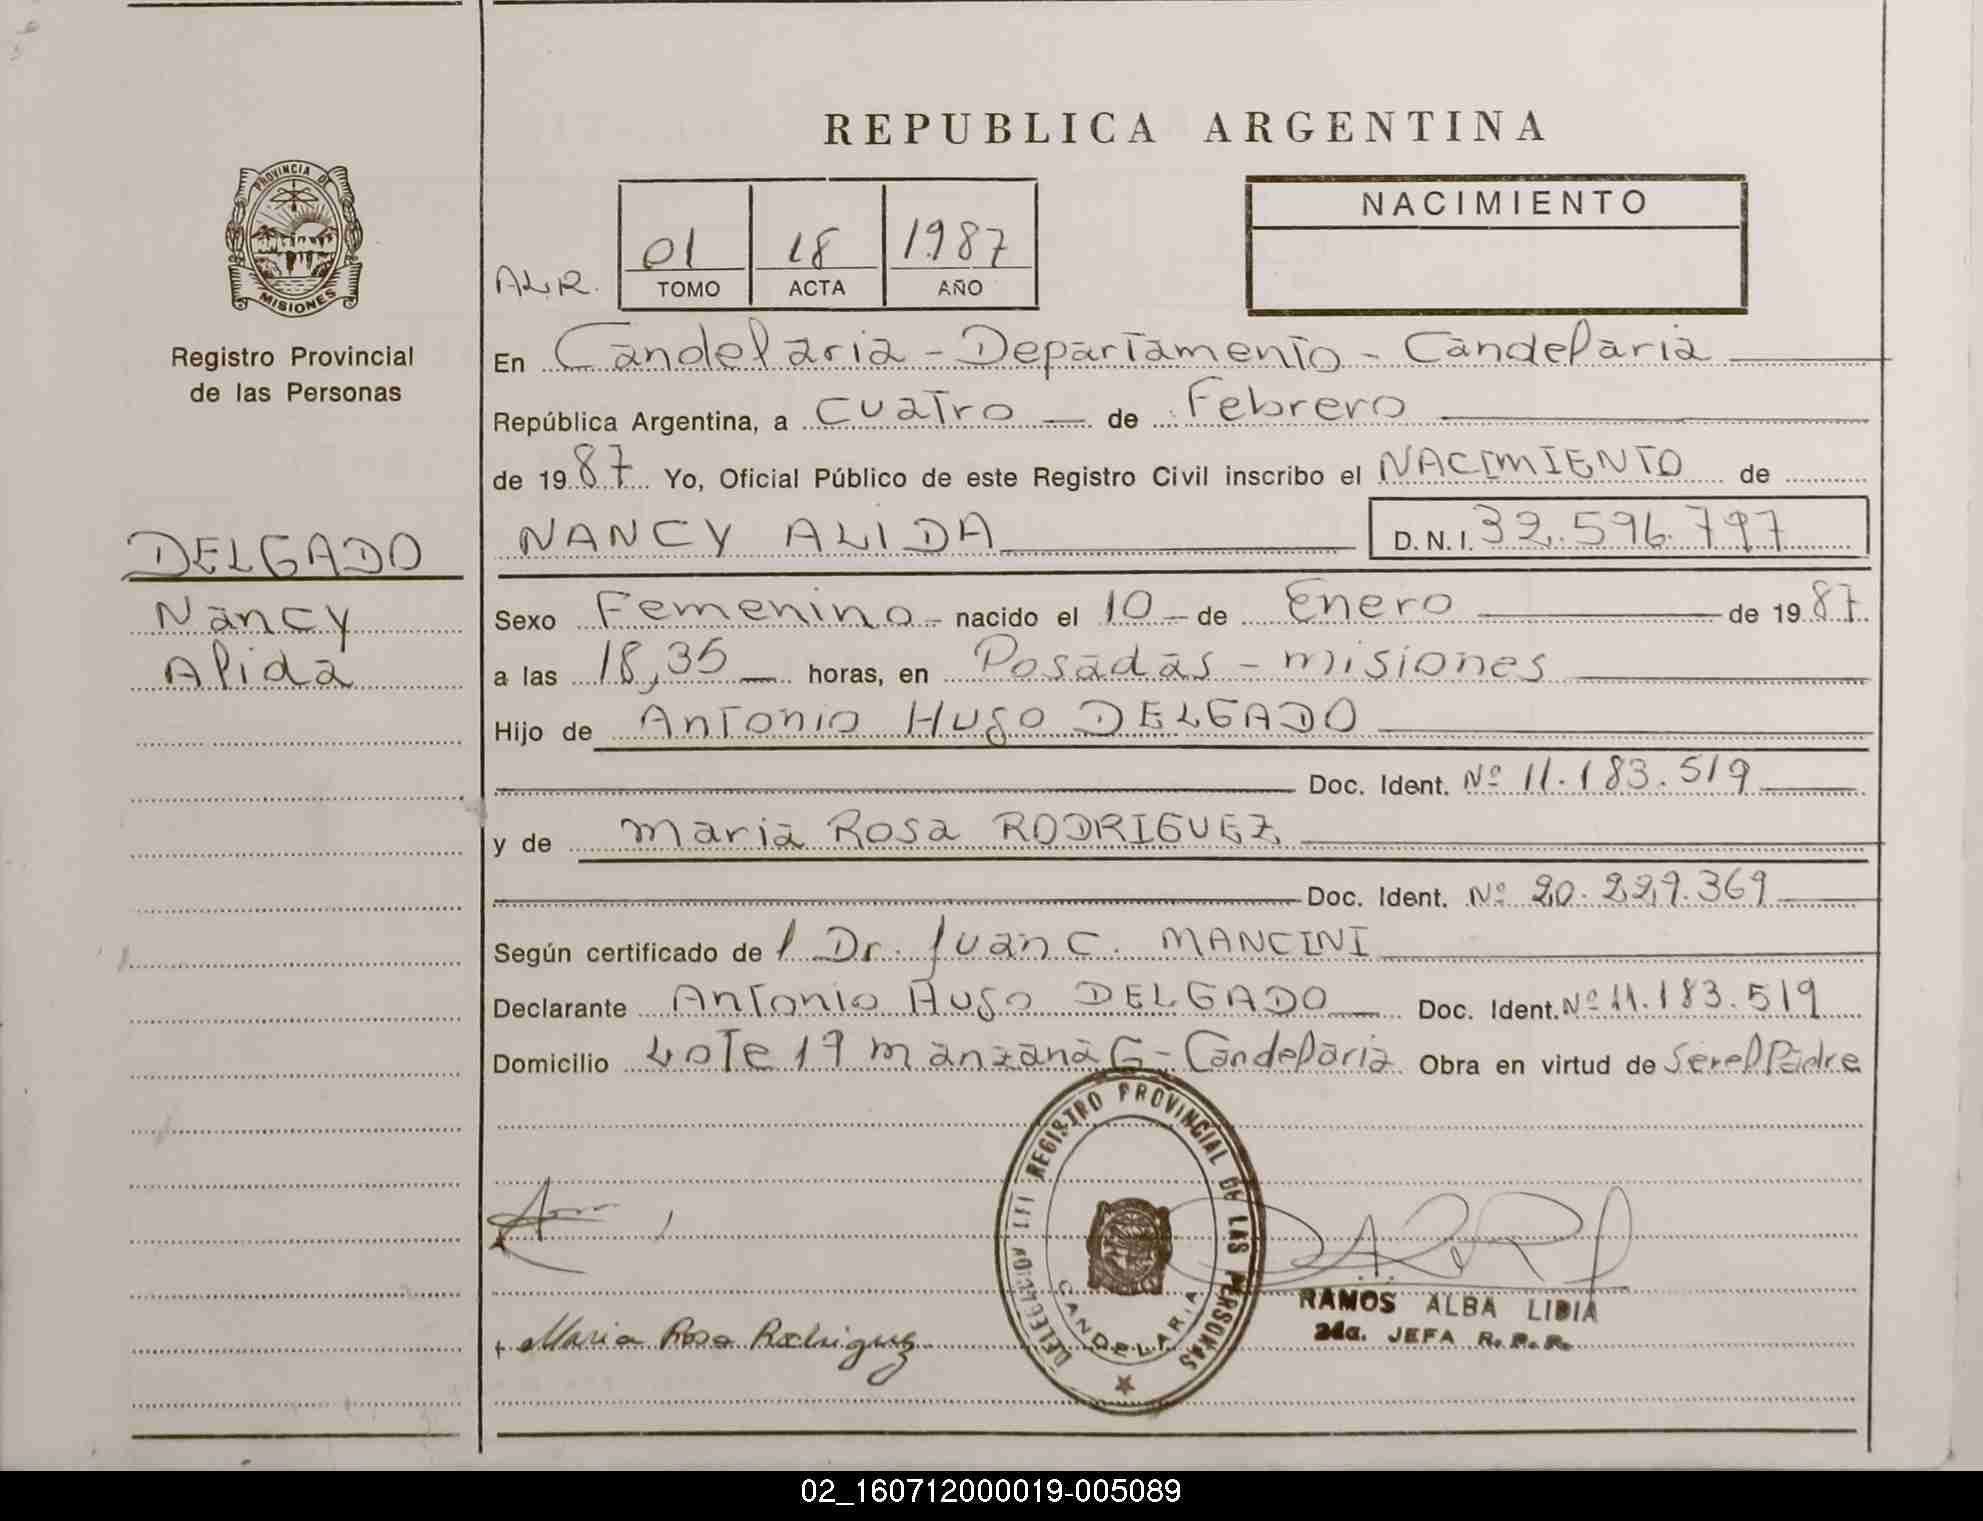 REPUBLICA ARGENTINA
PROVINCIA DE
MISIONES
Registro Provincial
de las Personas
DELGADO
Nancy
Alida
A.L.R.
01 18 1987
TOMO ACTA AÑO
NACIMIENTO
En Candelaria - Departamento - Candelaria
República Argentina, a cuatro de Febrero
de 1987 Yo, Oficial Público de este Registro Civil inscribo el NACIMIENTO de
NANCY ALIDA D.N.I. 32.596.797
Sexo Femenino - nacido el 10 - de Enero de 1987
a las 18,35 horas, en Posadas - misiones
Hijo de Antonio Hugo DELGADO
Doc. Ident. Nº 11.183.519
y de maria Rosa RODRIGUEZ
Doc. Ident. Nº 20.229.369
Según certificado de l Dr. Juan C. MANCINI
Declarante Antonio Hugo DELGADO Doc. Ident. Nº 11.183.519
Domicilio Lote 19 manzana G - Candelaria Obra en virtud de Ser el Padre
REGISTRO PROVINCIAL DE LAS PERSONAS
CANDELARIA
Maria Rosa Rodriguez
RAMOS ALBA LIDIA
2da. JEFA R.P.P.
02_160712000019-005089